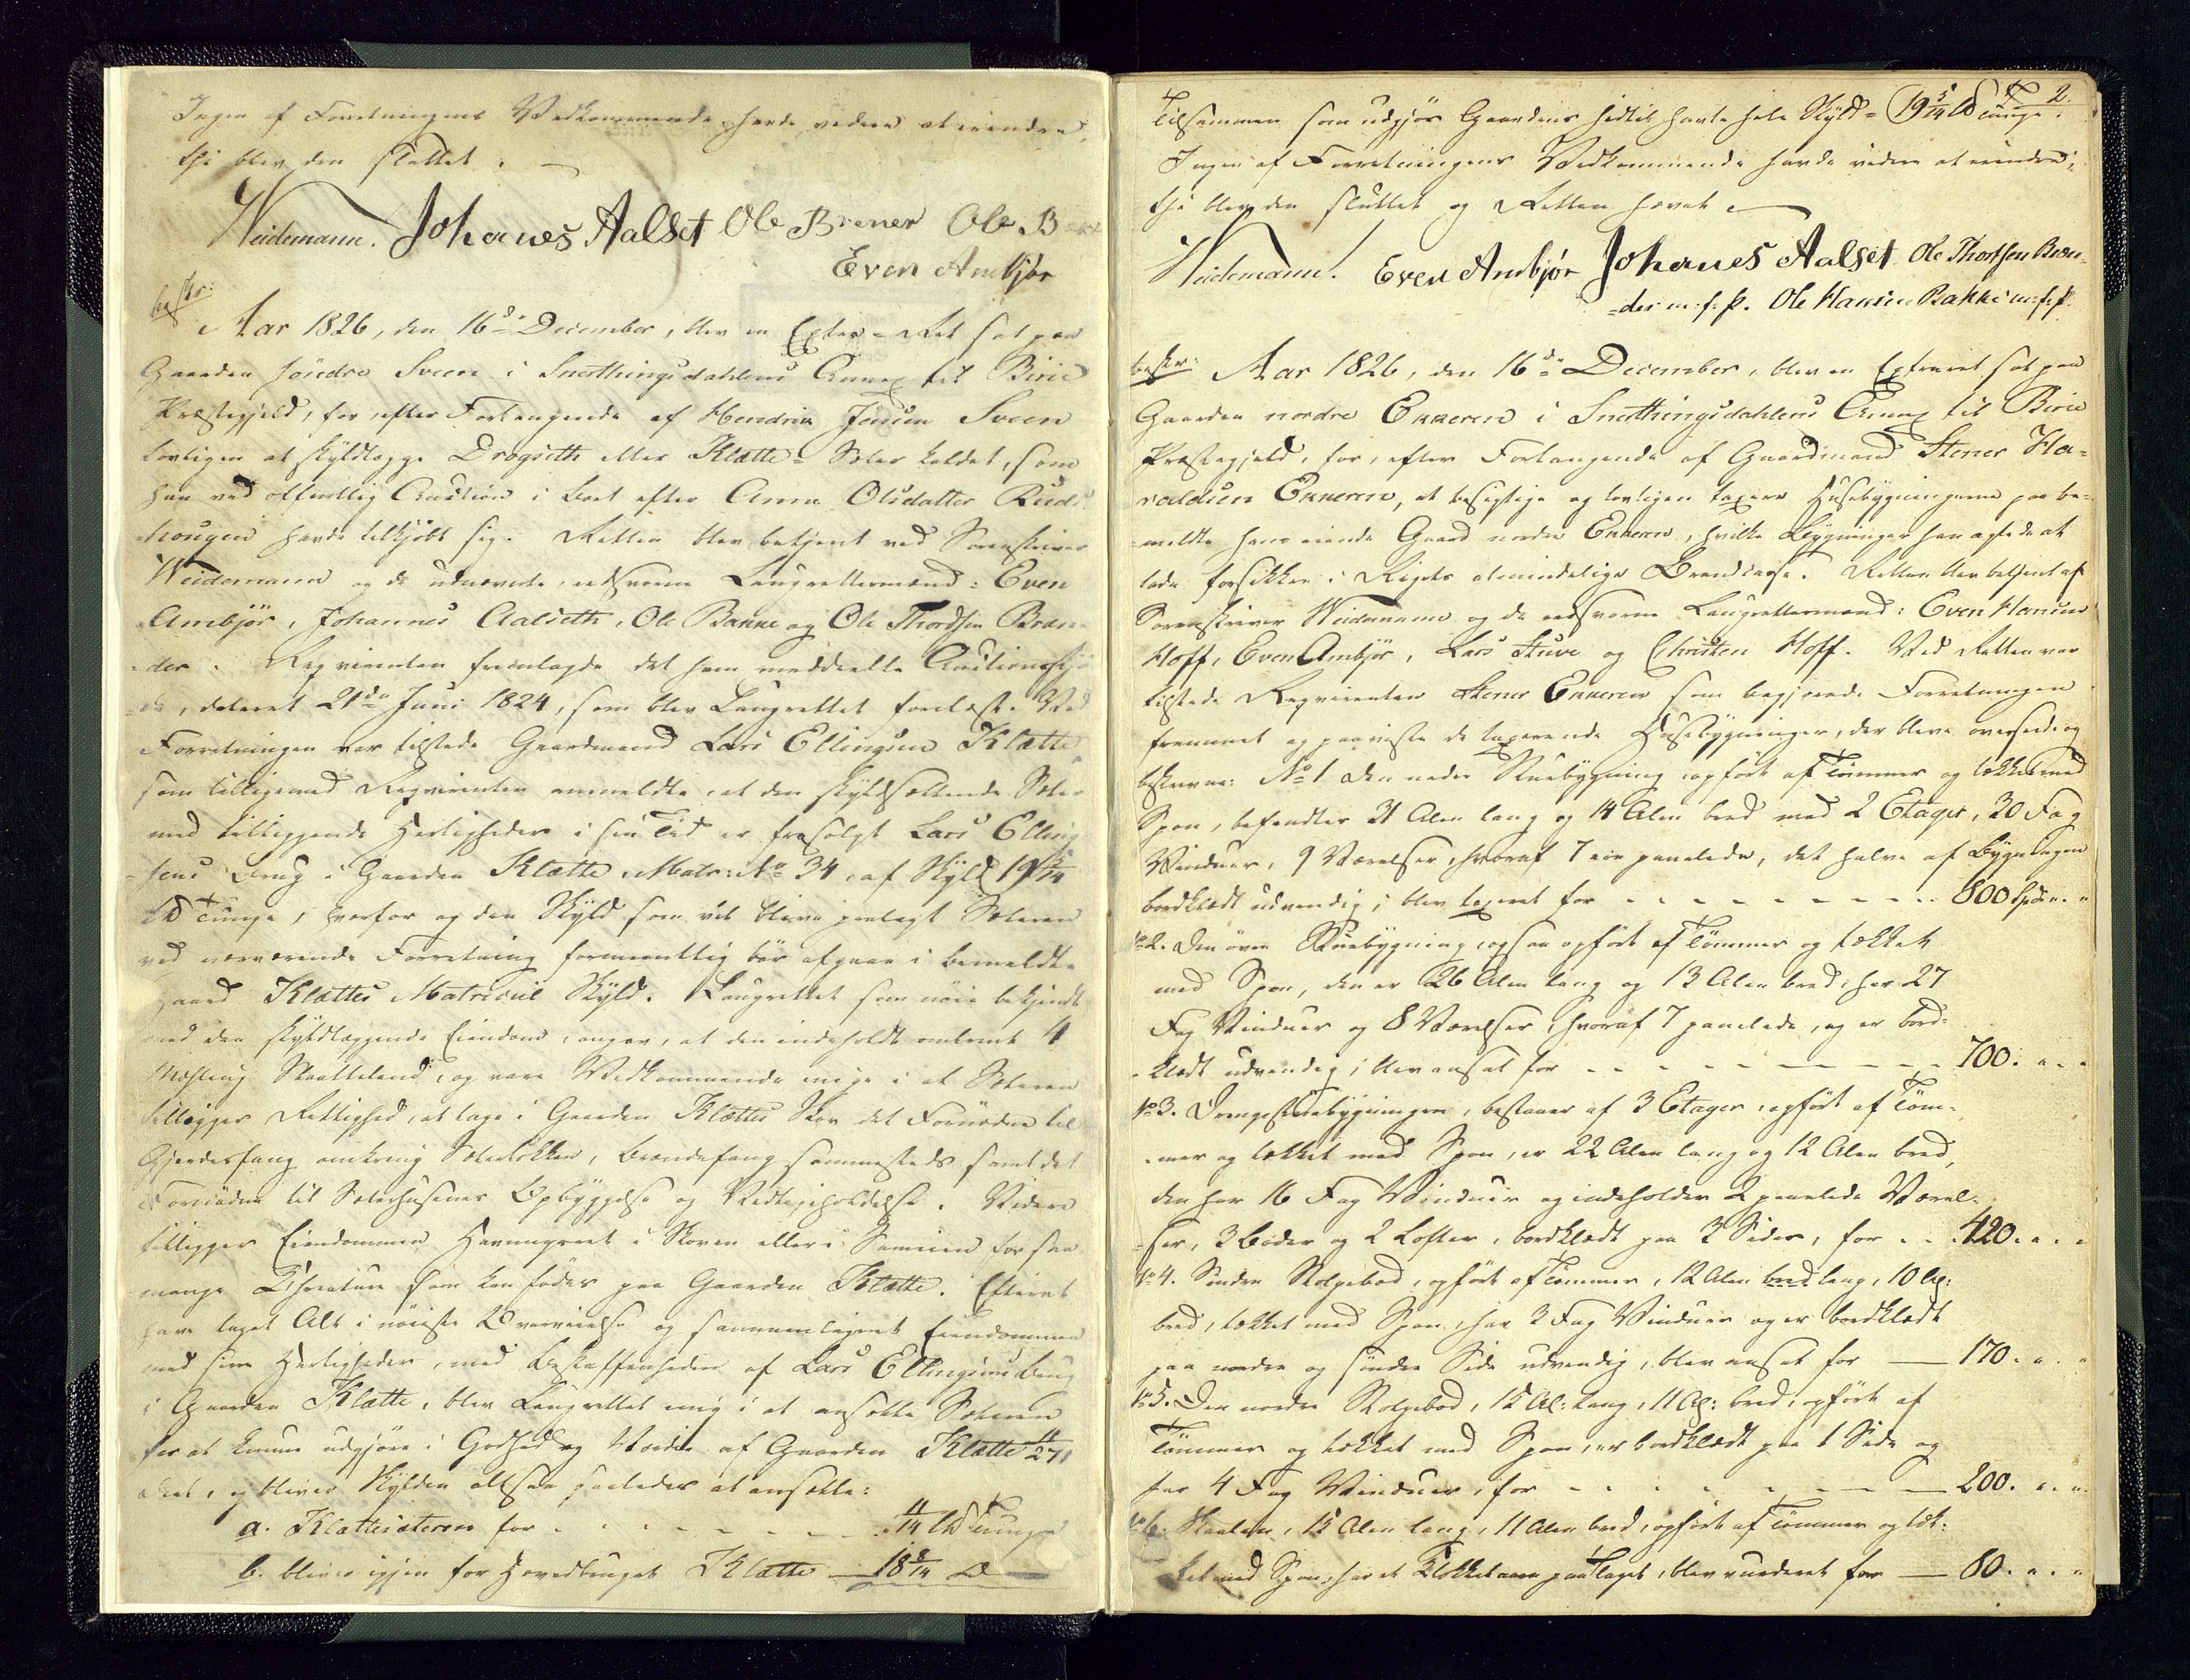 Ingen af Forretningens Vedkommende havde videre at erindre,
thi blev den sluttet.
Weidemann. Johanes Aalset Ole Brener Ole B
Even Ambjør
beskr:
Aar 1826, den 16de December, blev en Extra-Ret sat paa
Gaarden søndre Sveen i Snerthingsdahlens Annex til Birie
Præstegjeld, for efter Forlangende af Hendrik Jensen Sveen
lovligen at skyldlægge Drogseth eller Klætte-Sæter kaldet, som
han ved offentlig Auction i Boet efter Anne Olsdatter Ruds
hougen havde tilkjøbt sig. Retten blev betjent ved Sorenskriver
Weidemann og de udnævnte, eedsvorne Laugrettesmænd: Even
Ambjør, Johannes Aalseth, Ole Bakke og Ole Thordsen Bræn-
der. Reqvirenten fremlagde det ham meddeelte Auctionsskjø
de, dateret 21de Juni 1824, som blev Laugrettet forelæst. Ved
Forretningen var tilstede Gaardmand Lars Ellingsen Klætte
som tilligemed Reqvirenten anmeldte, at den skyldsættende Sæter
med tilliggende Herligheder i sin Tid er frasolgt Lars Elling
sens Brug i Gaarden Klætte, Matr: No 34, af Skyld 19 5/14
Tunge, hvorfor og den Skyld, som vil blive paalagt Sæteren
ved nærværende Forretning formeentlig bør afgaae i bemeldte
Gaard Klættes Matricul Skyld. Laugrettet som nøie bekjendt
med den skyldlæggende Eiendom, angav, at den indeholdt omtrent 4
Mæling Slaatteland, og vare Vedkommende enige i at Sæteren
tillægges Rettighed, at tage i Gaarden Klættes Skov det Fornødne til
Gjerdesfang omkring Sæterløkken, Brændefang sammesteds samt det
Fornødne til Sæterhusenes Opbyggelse og Vedligeholdelse. Videre
tilligger Eiendommen Havnegang i Skoven eller Sameien for saa
mange Creature som kan fødes paa Gaarden Klætte. Efterat
have taget Alt i nøieste Overveielse og sammenlignet Eiendommen
med sine Herligheder, med Beskaffenheden af Lars Ellingsens Brug
i Gaarden Klætte, blev Laugrettet enig i at ansætte Sæteren
for at kunne udgjøre i Godhed og Værdie af Gaarden Klætte 11/271
Deel, og bliver Skylden altsaa saaledes at ansætte:
a. Klættesæteren for - - - - - - 11/14 Tunge
b. bliver igjen for Hovedbruget Klætte — 18 8/14
2.
Tilsammen som udgjør Gaardens hidtil havte hele Skyld = 19 5/14 Tunge.
Ingen af Forretningens Vedkommende havde videre at erindre;
thi blev den sluttet og Retten hævet.
Weidemann. Even Ambjør Johanes Aalset. Ole Thordsen Bræn-
der m.f.P. Ole Hansen Bakke m:f:P.
beskr: Aar 1826, den 16de December, blev en Extraret sat paa
Gaarden nordre Enneren i Snerthingsdahlens Annex til Birie
Præstegjeld, for, efter Forlangende af Gaardmand Stener Ha-
raldsen Enneren, at besigtige og lovligen taxere Husebygningerne paa be-
meldte hans eiende Gaard nordre Enneren, hvilke Bygninger han agtede at
lade forsikkre i Rigets almindelige Brandcasse. Retten blev betjent af
Sorenskriver Weidemann og de eedsvorne Laugrettesmænd: Even Hansen
Hoff, Even Ambjør, Lars Stuve og Christen Hoff. Ved Retten var
tilstede Reqvirenten Stener Enneren som begjerede Forretningen
fremmet og paaviste de taxerende Husebygninger, der bleve overseede og
beskrevne: No 1 den nedre Stuebygning, opført af Tømmer og tækket med
Spon, befandtes 31 Alen lang og 14 Alen bred med 2 Etager, 30 Fag
Vinduer, 9 Værelser, hvoraf 7 ere panelede, det halve af Bygningen
bordklædt udvendig; blev taxeret for - - - - - - 800 Spd. " "
No 2. Den øvre Stuebygning ogsaa opført af Tømmer og tækket
med Spon, den er 26 Alen lang og 13 Alen bred, har 27
Fag Vinduer og 8 Værelser, hvoraf 7 panelede, og er bord-
klædt udvendig; blev ansat for - - - - - - 700. " "
No 3. Drengestuebygningen, bestaaer af 3 Etager, opført af Tøm-
mer og tækket med Spon, er 22 Alen lang og 12 Alen bred,
den har 16 Fag Vinduer og indeholder 2 panelede Værel-
ser, 3 Boder og 2 Lofter, bordklædt paa 3 Sider, for - - 420. " "
No 4. Søndre Stolpebod, opført af Tømmer, 12 Alen lang, 10 Al:
bred, tækket med Spon, har 3 Fag Vinduer og er bordklædt
paa nordre og søndre Side udvendig, blev ansat for — 170. " "
No 5. Den nordre Stolpebod, 15 Al: lang, 11 Al: bred, opført af
Tømmer og tækket med Spon, er bordklædt paa 1 Side og
har 4 Fag Vinduer, for - - - - - - 200. " "
No 6. Skaalen, 15 Alen lang, 11 Alen bred, opført af Tømmer og tæk-
ket med Spon, har et Klokketaarn paa Taget, blev vurderet for — 80. " "